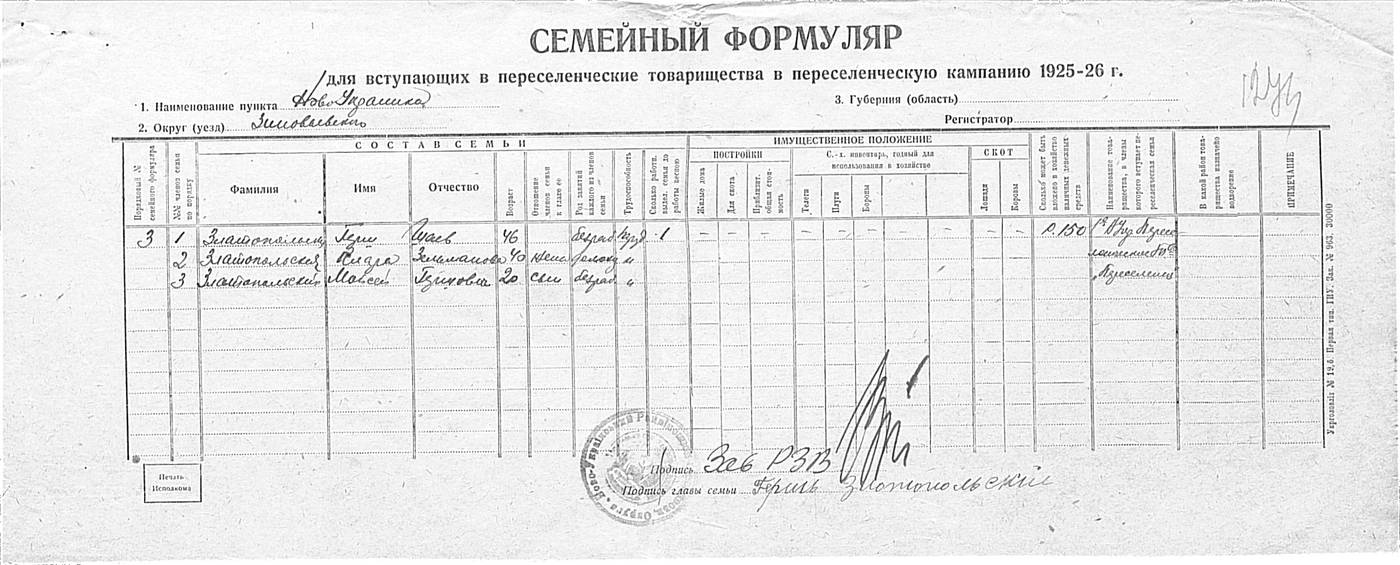 СЕМЕЙНЫЙ ФОРМУЛЯР
для вступающих в переселенческие товарищества в переселенческую кампанию 1925-26 г.
1. Наименование пункта Ново Украинка
3. Губерния (область)
2. Округ (уезд) Зиновьевского
Регистратор
Порядковый № семейного формуляра
№№ членов семьи по порядку
СОСТАВ СЕМЬИ
Фамилия
Имя
Отчество
Возраст
Отношение членов семьи к главе ее
Род занятий каждого из членов семьи
Трудоспособность
Сколько работн. выдел. семья до работы весною
ИМУЩЕСТВЕННОЕ ПОЛОЖЕНИЕ
ПОСТРОЙКИ
Жилые дома
Для скота
Приблизит. общая стоимость
С.-х. инвентарь, годный для использования в хозяйстве
Телеги
Плуги
Бороны
СКОТ
Лошади
Коровы
Сколько может быть вложено в хозяйство наличных денежных средств
Наименование товарищества, в члены которого вступает переселенческая семья
В какой район товарищества назначено водворение
ПРИМЕЧАНИЕ
3 1 Златопольский Герш Шаев 46 безраб труд 1 – – – – – – – – – – – р. 150
2 Златопольская Клара Зельманова 40 жена домохоз "
3 Златопольский Мойсей Гершкович 20 сын безраб " „Переселенец"
Подпись Зав РЗВ
Подпись главы семьи Герш Златопольский
Печать Исполкома
Укрголовліт № 19,б. Первая тип. ГПУ. Зак. № 663. 30000